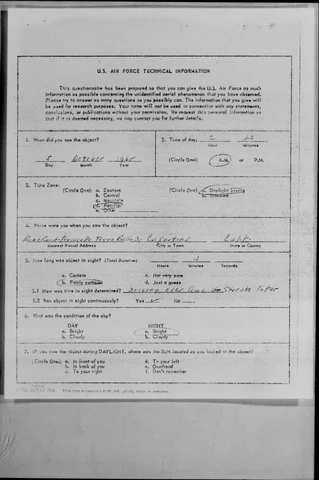 U.S. AIR FORCE TECHNICAL INFORMATION
This questionnaire has been prepared so that you can give the U.S. Air Force as much
information as possible concerning the unidentified aerial phenomenon that you have observed.
Please try to answer as many questions as you possibly can. The information that you give will
be used for research purposes. Your name will not be used in connection with any statements,
conclusions, or publications without your permission. We request this personal information so
that if it is deemed necessary, we may contact you for further details.
1. When did you see the object?
5 October 1965
Day Month Year
2. Time of day:
Hour Minutes
(Circle One): A.M. or P.M.
3. Time Zone:
(Circle One): a. Eastern
b. Central
c. Mountain
d. Pacific
e. Other
(Circle One): a. Daylight Saving
b. Standard
4. Where were you when you saw the object?
Cupertino Calif
Nearest Postal Address City or Town State or County
5. How long was object in sight? (Total Duration)
Hours Minutes Seconds
a. Certain
b. Fairly certain
c. Not very sure
d. Just a guess
5.1 How was time in sight determined?
5.2 Was object in sight continuously? Yes No
6. What was the condition of the sky?
DAY
a. Bright
b. Cloudy
NIGHT
a. Bright
b. Cloudy
7. IF you saw the object during DAYLIGHT, where was the SUN located as you looked at the object?
(Circle One): a. In front of you
b. In back of you
c. To your right
d. To your left
e. Overhead
f. Don't remember